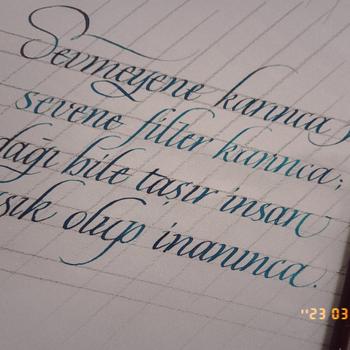 Sevmeyene karınca
sevene filler karınca;
dağı bile taşır insan
şık olup inanınca.
'23 03